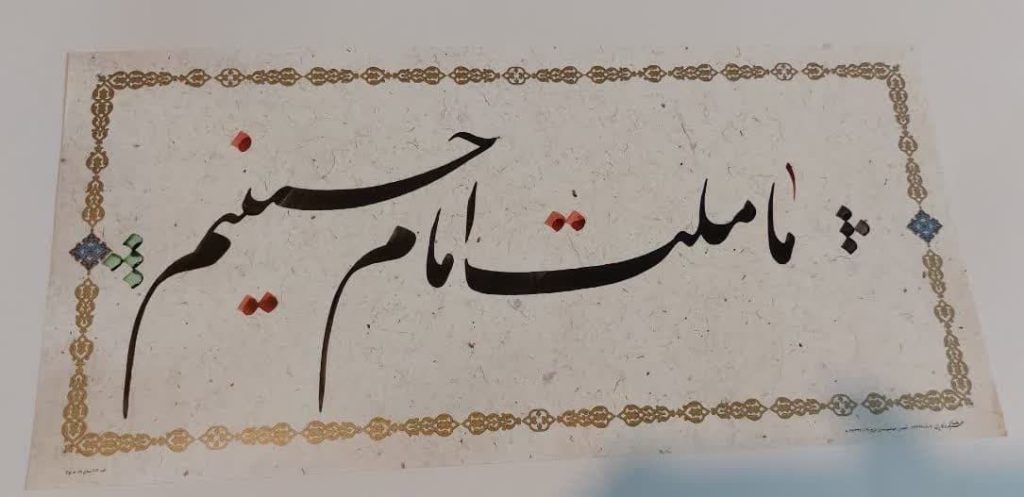 ما ملت امام حسینیم